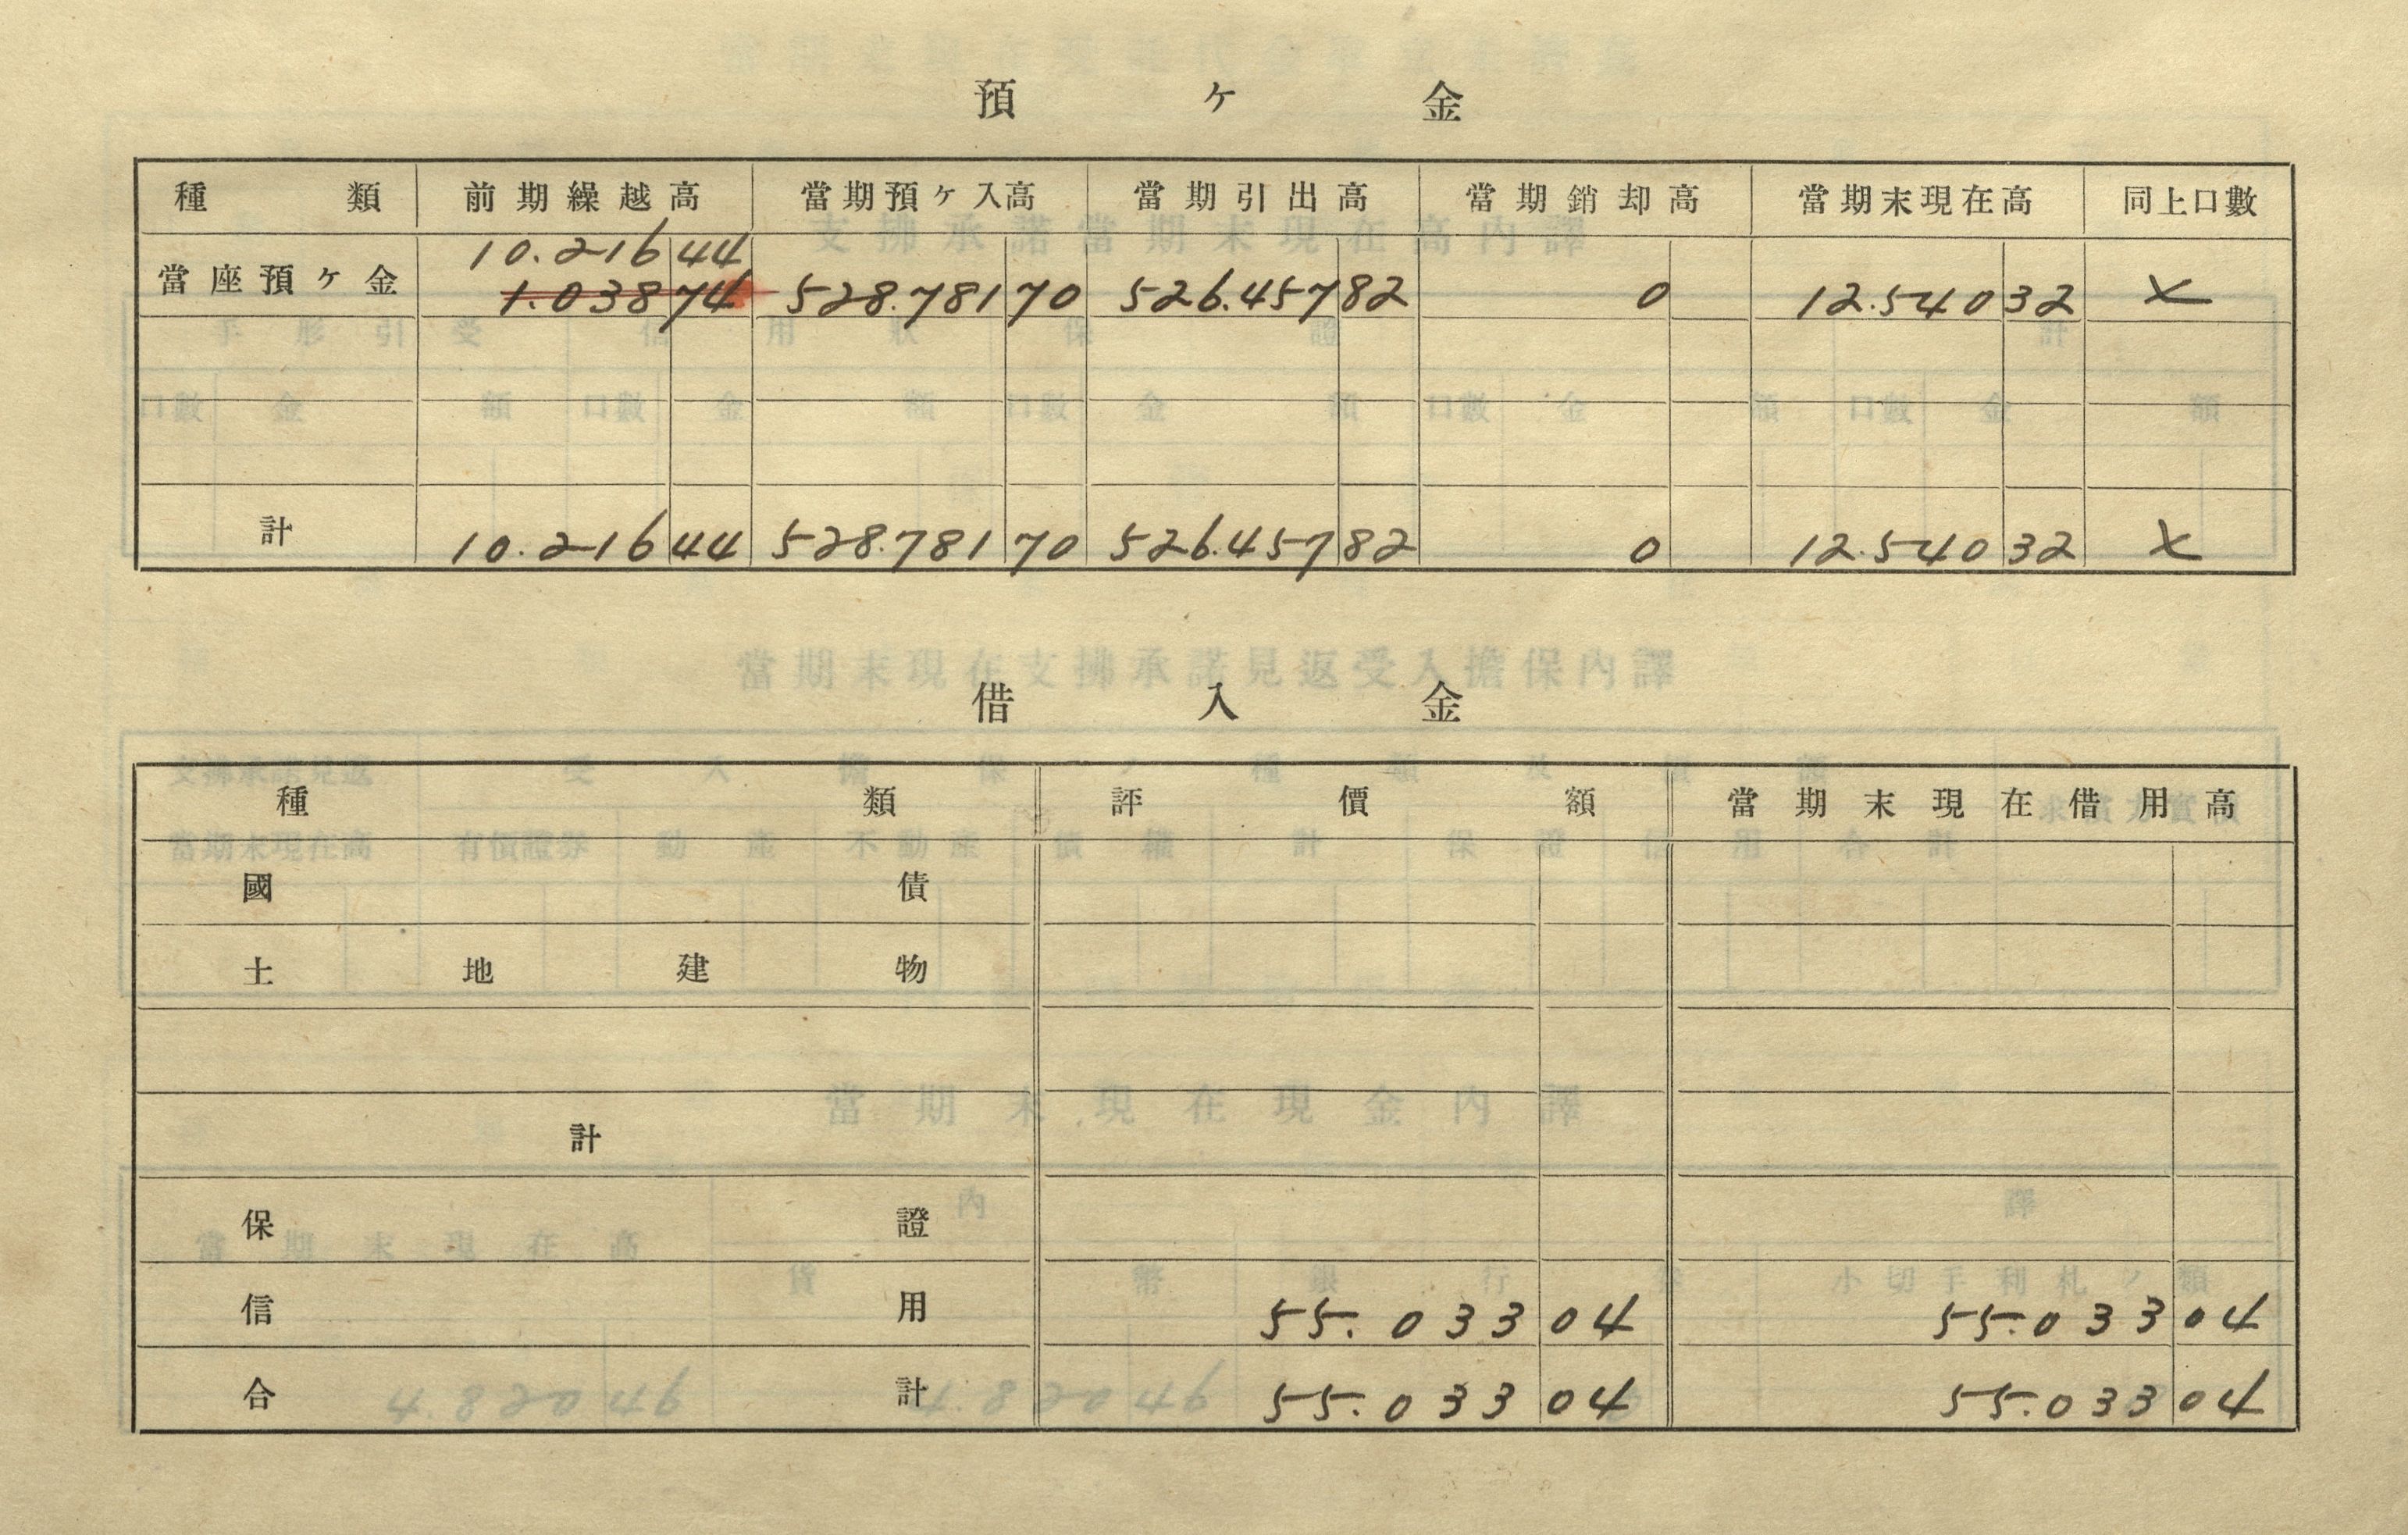 預ケ金
種類 前期繰越高 當期預ケ入高 當期引出高 當期銷却高 當期末現在高 同上口數
10.216 44
當座預ケ金 1.038 74 528.781 70 526.457 82 0 12.540 32 ×
計 10.216 44 528.781 70 526.457 82 0 12.540 32 ×
借入金
種類 評價額 當期末現在借用高
國債
土地建物
計
保證
信用 55.033 04 55.033 04
合計 55.033 04 55.033 04